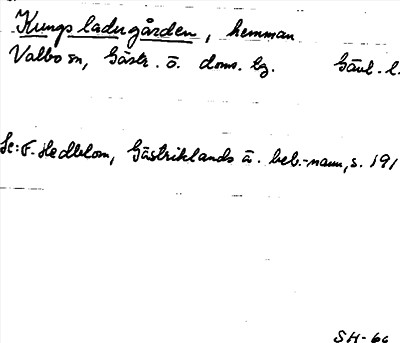 Kungsladugården, hemman
Valbo sn, Gästr. ö. doms. hg. Gävl. l.
Se: F. Hedblom, Gästriklands ä. beb.-namn, s. 191
SH-66